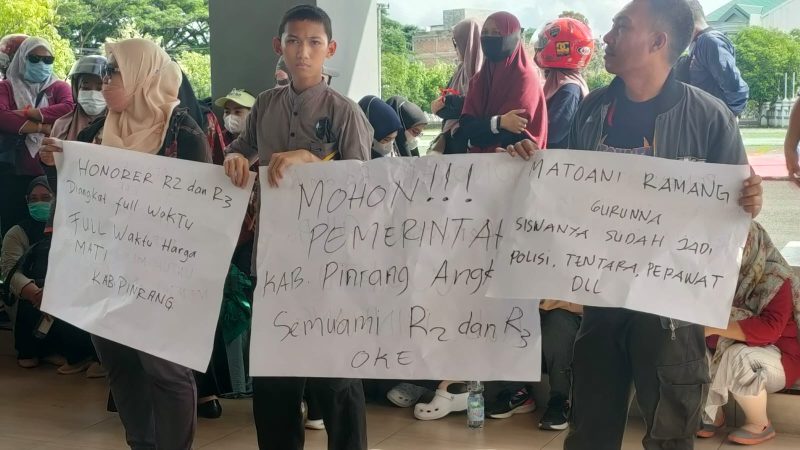 HONORER R2 dan R3
Diangkat full WaKTU
FULL WaKTU Harga
MATI
KAB. PINRANG
MOHON!!!
PEMERINTAH
KAB. Pinrang Angk
Semuami R2 dan R3
OKE
MATOANI RAMANG
GURUNNA
SISWANYA SUDAH JADI
POLISI, TENTARA, PERAWAT
DLL